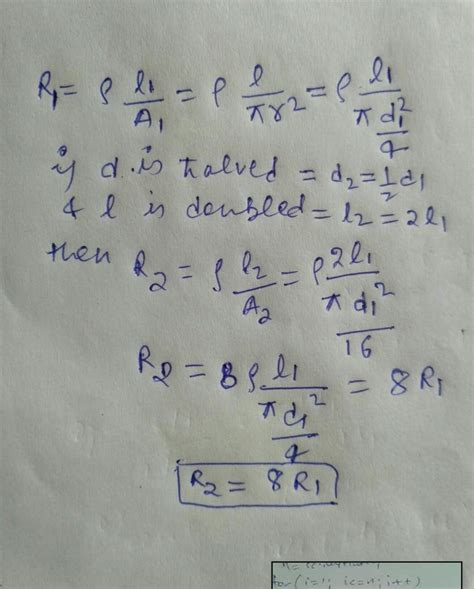 R₁ = ρ l₁/A₁ = ρ l/πr² = ρ l₁/(π d₁²/4)
if d is halved = d₂ = 1/2 d₁
& l is doubled = l₂ = 2l₁
then R₂ = ρ l₂/A₂ = ρ 2l₁/(π d₁²/16)
R₂ = 8 ρ l₁/(π d₁²/4) = 8 R₁
R₂ = 8 R₁
for (i=1; i<=n; i++)